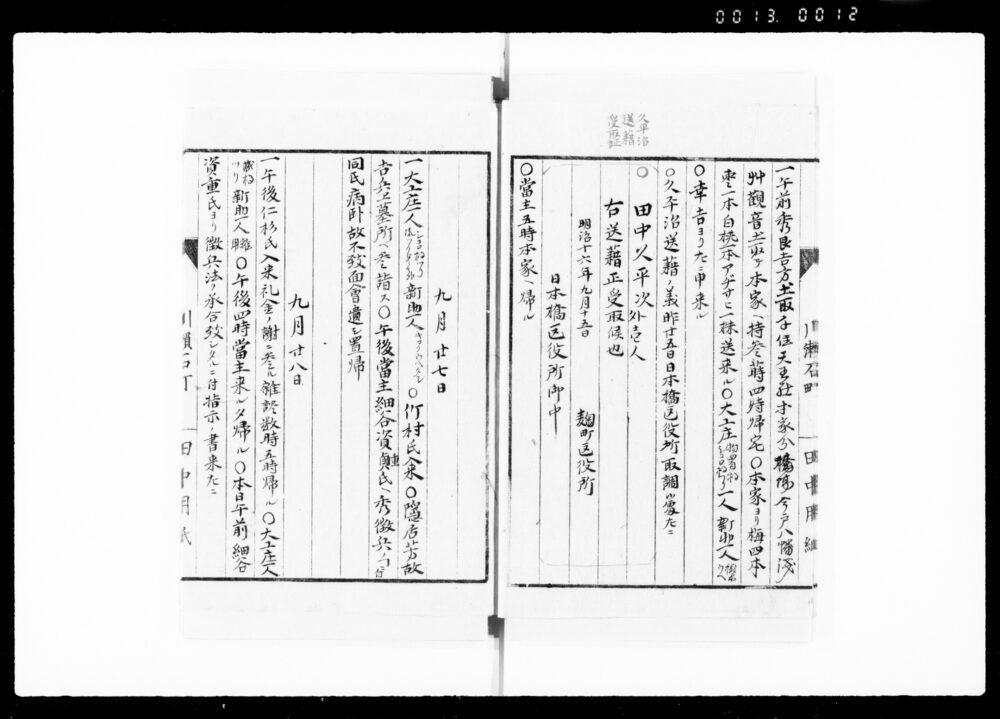 0013.0012
久平治
送籍
受取証
一午前秀良吉方土取子住天王社才家分橋場今戸八幡浅
艸観音土取ヶ本家ヘ持参蒔四時帰宅〇本家ヨリ梅四本
棗一本白桃一本アヂサヒ一株送来ル〇大工庄 一人新助一人
〇幸吉ヨリ申来ル
〇久平治送籍ノ義昨廿五日日本橋区役所取調
〇田中久平次外壱人
右送籍正受取候也
明治十六年九月十五日
麹町区役所
日本橋区役所御中
〇當主五時本家ヘ帰ル
川瀬石町
田中用紙
九月廿七日
一大工庄一人 新助一人 〇竹村氏入来〇隠居芳故
吉兵衛墓所ヘ参詣ス〇午後當主細谷資貞氏ヘ秀徴兵ノ
同氏病臥故不致面會遣シ置帰
九月廿八日
一午後仁杉氏入来礼金ノ謝ニ参ル雑談数時五時帰ル〇大工庄一人
新助一人 〇午後四時當主来ル夕帰ル〇本日午前細谷
資重氏ヨリ徴兵法ヲ承合致シタルニ付指示ノ書来
川瀬石丁
田中用紙